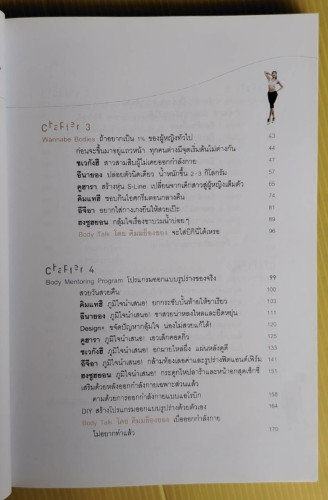 Chapter 3
Wannabe Bodies ถ้าอยากเป็น 1% ของผู้หญิงทั่วไป 43
ก่อนจะขึ้นมาอยู่แถวหน้า ทุกคนต่างมีจุดเริ่มต้นไม่ต่างกัน 44
ชเวกังฮี สาวสามสิบผู้ไม่เคยออกกำลังกาย 46
อีนายอง ปล่อยตัวนิดเดียว น้ำหนักขึ้น 2-3 กิโลกรัม 57
คูฮารา สร้างหุ่น S-Line เปลี่ยนจากเด็กสาวสู่ผู้หญิงเต็มตัว
คิมแทฮี ชอบกินไอศกรีมตอนกลางคืน
อีจีอา อยากใส่กางเกงยีนให้สวยเป๊ะ
ฮงซูฮยอน กลุ้มใจเรื่องขาบวมน้ำบ่อยๆ
Body Talk โดย คิมมยองยอง จะใส่บิกินีได้เหรอ 96
Chapter 4
Body Memoring Program โปรแกรมออกแบบรูปร่างของจริง 99
สวยวันสวยคืน 100
คิมแทฮี ภูมิใจนำเสนอ! ยกกระชับบั้นท้ายให้ชาเรียว 103
อีนายอง ภูมิใจนำเสนอ! ขาสวยน่าหลงใหลและยืดหยุ่น 107
Design+ ขจัดปัญหากลุ้มใจ น่องไม่สวยแก้ได้! 116
คูฮารา ภูมิใจนำเสนอ! เอวเล็กคอดกิ่ว 121
ชเวกังฮี ภูมิใจนำเสนอ! อกผายไหล่ผึ่ง แผ่นหลังดูดี 131
อีจีอา ภูมิใจนำเสนอ! กล้ามท้องเลอค่าและรูปร่างฟิตแอนด์เฟิร์ม 141
ฮงซูฮยอน ภูมิใจนำเสนอ! กระดูกไหปลาร้าและหน้าอกสุดเซ็กซี่ 151
เสริมด้วยหลังออกกำลังกายเฉพาะส่วนแล้ว
ตามด้วยการออกกำลังกายแบบแอโรบิก 158
DIY สร้างโปรแกรมออกแบบรูปร่างด้วยตัวเอง 164
Body Talk โดย คิมมยองยอง เบื่อออกกำลังกาย
ไม่อยากทำแล้ว 170